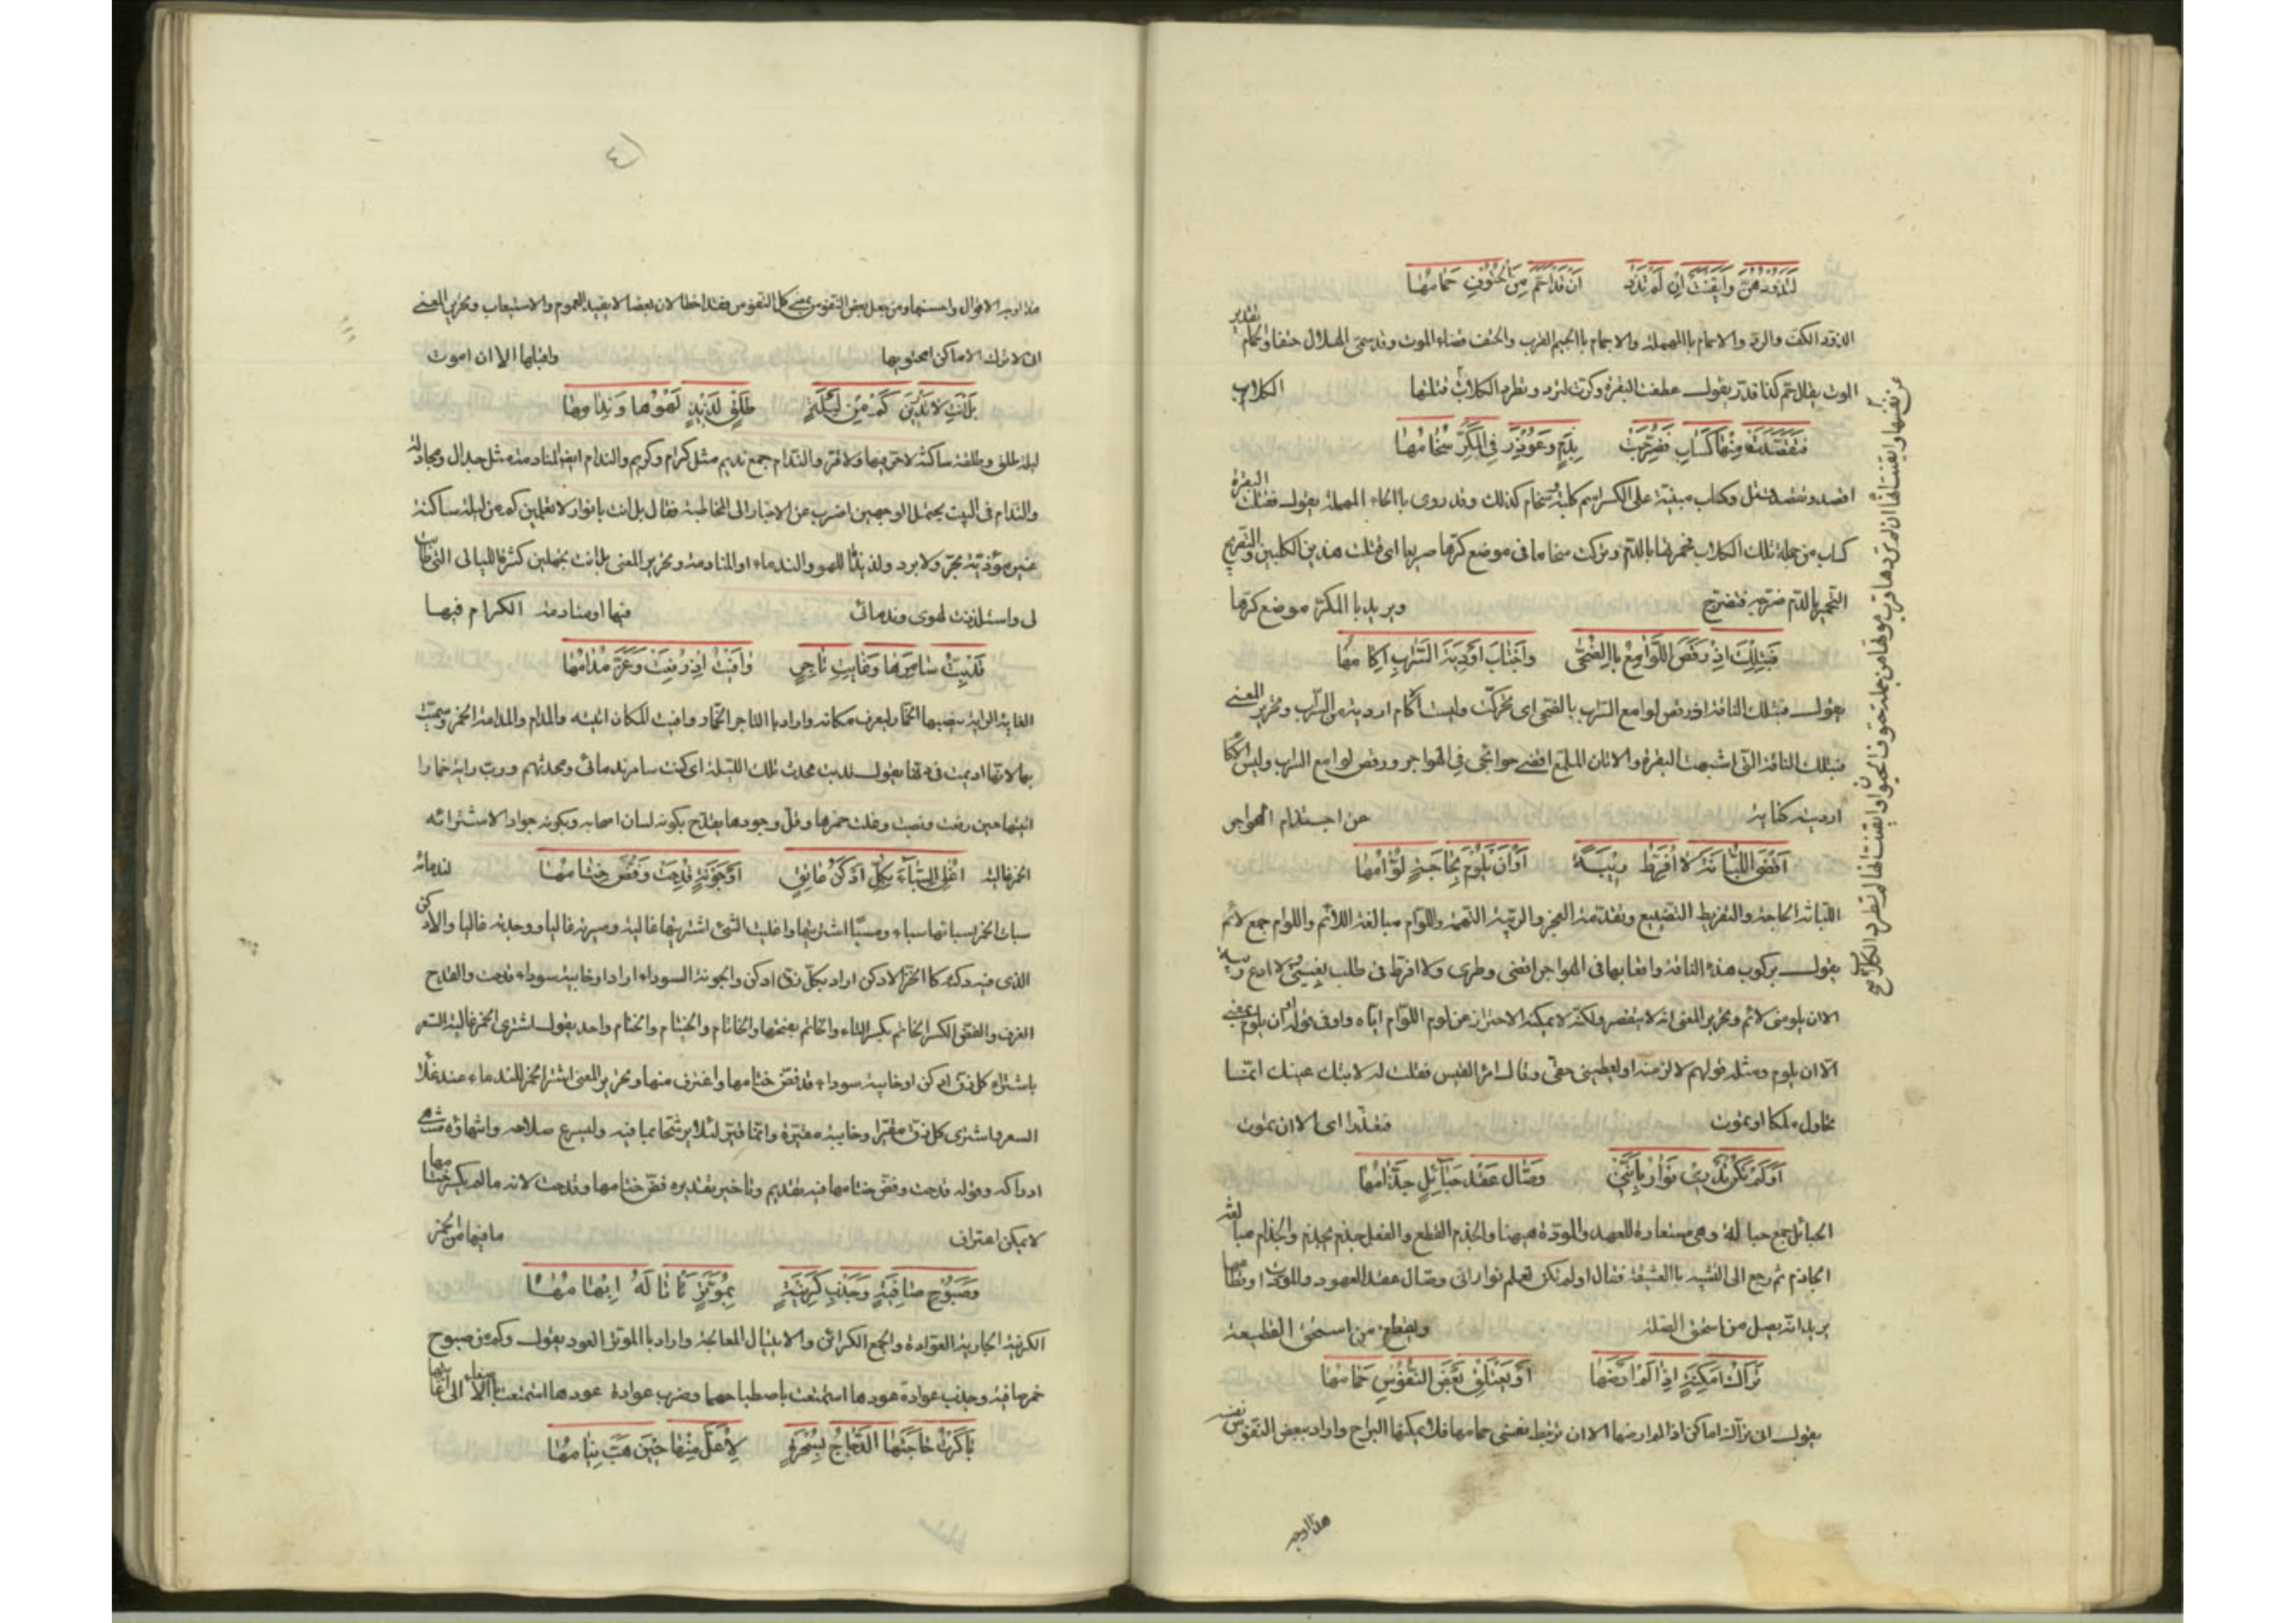 لِتَذُودَهُنَّ وَاَيْقَنَتْ اِنْ لَمْ تَذُدْ اَنْ قَدْ اَحَمَّ مِنَ الْحُتُوْفِ حِمَامُهَا
الذود الكف والرد والاحمام باالمهملة والاجمام باالجيم القرب والحتف قضاء الموت وقد سمى الهلاك حتفا والحمام تقدير
الموت يقال حم كذا قدر يقول عطفت البقرة وكرت لترد وتطرد الكلاب قتلتها الكلاب
عن نفسها وايقنت انها ان لم تردها قرب موتها من جملة حتوف الحيوان وايقنت انها لم تطرد الكلاب
فَتَقَصَّدَتْ مِنْهَا كَسَابِ فَضُرِّجَتْ بِدَمٍ وَغُوْدِرَ فِى الْمَكَرِّ سُخَامُهَا
اقصد وتقصد قتل وكساب مبنية على الكسر اسم كلبة وسخام كذلك وقد روى باالحاء المهملة يقول فقتلت البقرة
كساب من جملة تلك الكلاب فحمرتها باالدم وتركت سخاما فى موضع كرتها صريعا اى قتلت هذين الكلبين والتضريج
التحمير باالدم ضرجه فتضرج ويريد باالمكر موضع كرتها
فَبِتِلْكَ اِذْ رَقَصَ اللَّوَامِعُ بِاالضُّحٰى وَاجْتَابَ اَرْدِيَةَ السَّرَابِ اِكَامُهَا
يقول فبتلك الناقة اذ رقص لوامع السراب بالضحى اى تحركت ولبست اكام اردية من السراب وتحرير المعنى
فبتلك الناقة التى اشبهت البقرة والاتان الملمع اقضى حوائجى فى الهواجر ورقص لوامع السراب ولبس الاكام
اردية كناية عن احتدام الهواجر
اَقْضِى اللُّبَانَةَ لَا اُفَرِّطُ رِيْبَةً اَوْ اَنْ يَلُوْمَ بِحَاجَةٍ لُوَّامُهَا
اللبانة الحاجة والتفريط التضييع وتقدمة العجز والريبة التهمة واللوام مبالغة اللائم واللوام جمع لائم
يقول بركوب هذه الناقة واتعابها فى الهواجر اقضى وطرى ولا افرط فى طلب بغيتى ولا ادع ريبة
الا ان يلومنى لائم وتحرير المعنى انه لا يقصر ولكنه لا يمكنه الاحتراز عن لوم اللوام اياه واو فى قوله او ان يلوم بمعنى
الا ان يلوم ومثله قولهم لالزمنه او يعطينى حقى وقال امرؤ القيس فقلت له لا تبك عينك انما
نحاول ملكا او نموت فنعذرا اى الا ان نموت
اَوَلَمْ تَكُنْ تَدْرِىْ نَوَارُ بِاَنَّنِىْ وَصَّالُ عَقْدِ حَبَائِلٍ جَذَّامُهَا
الحبائل جمع حبالة وهى مستعارة للعهد والمودة هيهنا والجذم القطع والفعل جذم يجذم والجذام مبالغة
الجاذم ثم رجع الى التشبيب باالعشيقة فقال اولم تكن تعلم نوار انى وصال عقد العهود والمودات وقطاعها
يريد انه يصل من استحق الصلة ويقطع من استحق القطيعة
تَرَّاكُ اَمْكِنَةٍ اِذَا لَمْ اَرْضَهَا اَوْ يَعْتَلِقْ بَعْضَ النُّفُوْسِ حِمَامُهَا
يقول انى تراك اماكن اذا لم ارضها الا ان يرتبط نفسى حمامها فلا يمكنها البراح واراد ببعض النفوس نفسه
هذا اوجه
٤١
هذا اوجه الاقوال واحسنها ومن جعل بعض النفوس بمعنى كل النفوس فقد اخطا لان بعضا لا يفيد العموم والاستيعاب وتحرير المعنى
انى لا اترك الاماكن اجتويها واقليها الا ان اموت
بَلْ اَنْتِ لَا تَدْرِيْنَ كَمْ مِنْ لَيْلَةٍ طَلْقٍ لَذِيْذٍ لَهْوُهَا وَنِدَامُهَا
ليلة طلق وطلقة ساكنة لا حر فيها ولا قر والندام جمع نديم مثل كرام وكريم والندام ايضا المنادمة مثل جدال ومجادلة
والندام فى البيت يحتمل الوجهين اضرب عن الاخبار الى المخاطبة فقال بل انت يا نوار لا تعلمين كم من ليلة ساكنة
غير مؤذية بحر ولا برد ولذيذة اللهو والندماء او المنادمة وتحرير المعنى بل انت تجهلين كثرة الليالى التى طابت
لى واستلذذت لهوى وندمائى فيها او منادمة الكرام فيها
قَدْ بِتُّ سَامِرَهَا وَغَايَةِ تَاجِرٍ وَافَيْتُ اِذْ رُفِعَتْ وَعَزَّ مُدَامُهَا
الغاية الراية ينصبها الخمار ليعرف مكانه واراد باالتاجر الخمار ووافيت المكان اتيته والمدام والمدامة الخمر وسميت
بها لانها اديمت فى دنها يقول قد بت محدث تلك الليلة اى كنت سامر ندمائى ومحدثهم ورب راية خمار
اتيتها حين رفعت ونصبت وغلت خمرها وقل وجودها يمتدح بكونه لسان اصحابه وبكونه جوادا لاشترائه
الخمر غالية لندمائه
اُغْلِى السِّبَآءَ بِكُلِّ اَدْكَنَ عَاتِقٍ اَوْ جَوْنَةٍ قُدِحَتْ وَفُضَّ خِتَامُهَا
سبات الخمر اسباها سباء ومسبا اشتريتها واغليت الشئ اشتريتها غالية وصيرته غاليا ووجدته غاليا والادكن
الذى فيه دكنة كاالخز الادكن اراد بكل زق ادكن والجونة السوداء اراد او خابية سوداء قدحت والقدح
الغرف والفض الكسر الخاتم بكسر التاء والخاتم بفتحها والخاتام والخيتام والختام واحد يقول اشترى الخمر غالية السعر
باشتراء كل زق ادكن او خابية سوداء قد فض ختامها واغترف منها وتحرير المعنى اشترى الخمر للندماء عند غلاء
السعر واشترى كل زق مقير او خابية مقيرة وانما قير لئلا يرشح بما فيه وليسرع صلاحه وانتهاؤه منتهى
ادراكه وقوله قدحت وفض ختامها فيه تقديم وتاخير تقديره فض ختامها وقدحت لانه ما لم يكسر ختامها
لا يمكن اغتراف ما فيها من الخمر
وَصَبُوْحِ صَافِيَةٍ وَجَذْبِ كَرِيْنَةٍ بِمُوَتَّرٍ تَاْتَالُهُ اِبْهَامُهَا
الكرينة الجارية العوادة والجمع الكرائن والايتيال المعالجة واراد باالموتر العود يقول وكم من صبوح
خمر صافية وجذب عوادة عودها استمتعت باصطباحها وضرب عوادة عودها استمتعت
بَاكَرْتُ حَاجَتَهَا الدَّجَاجَ بِسُحْرَةٍ لِاُعَلَّ مِنْهَا حِيْنَ هَبَّ نِيَامُهَا